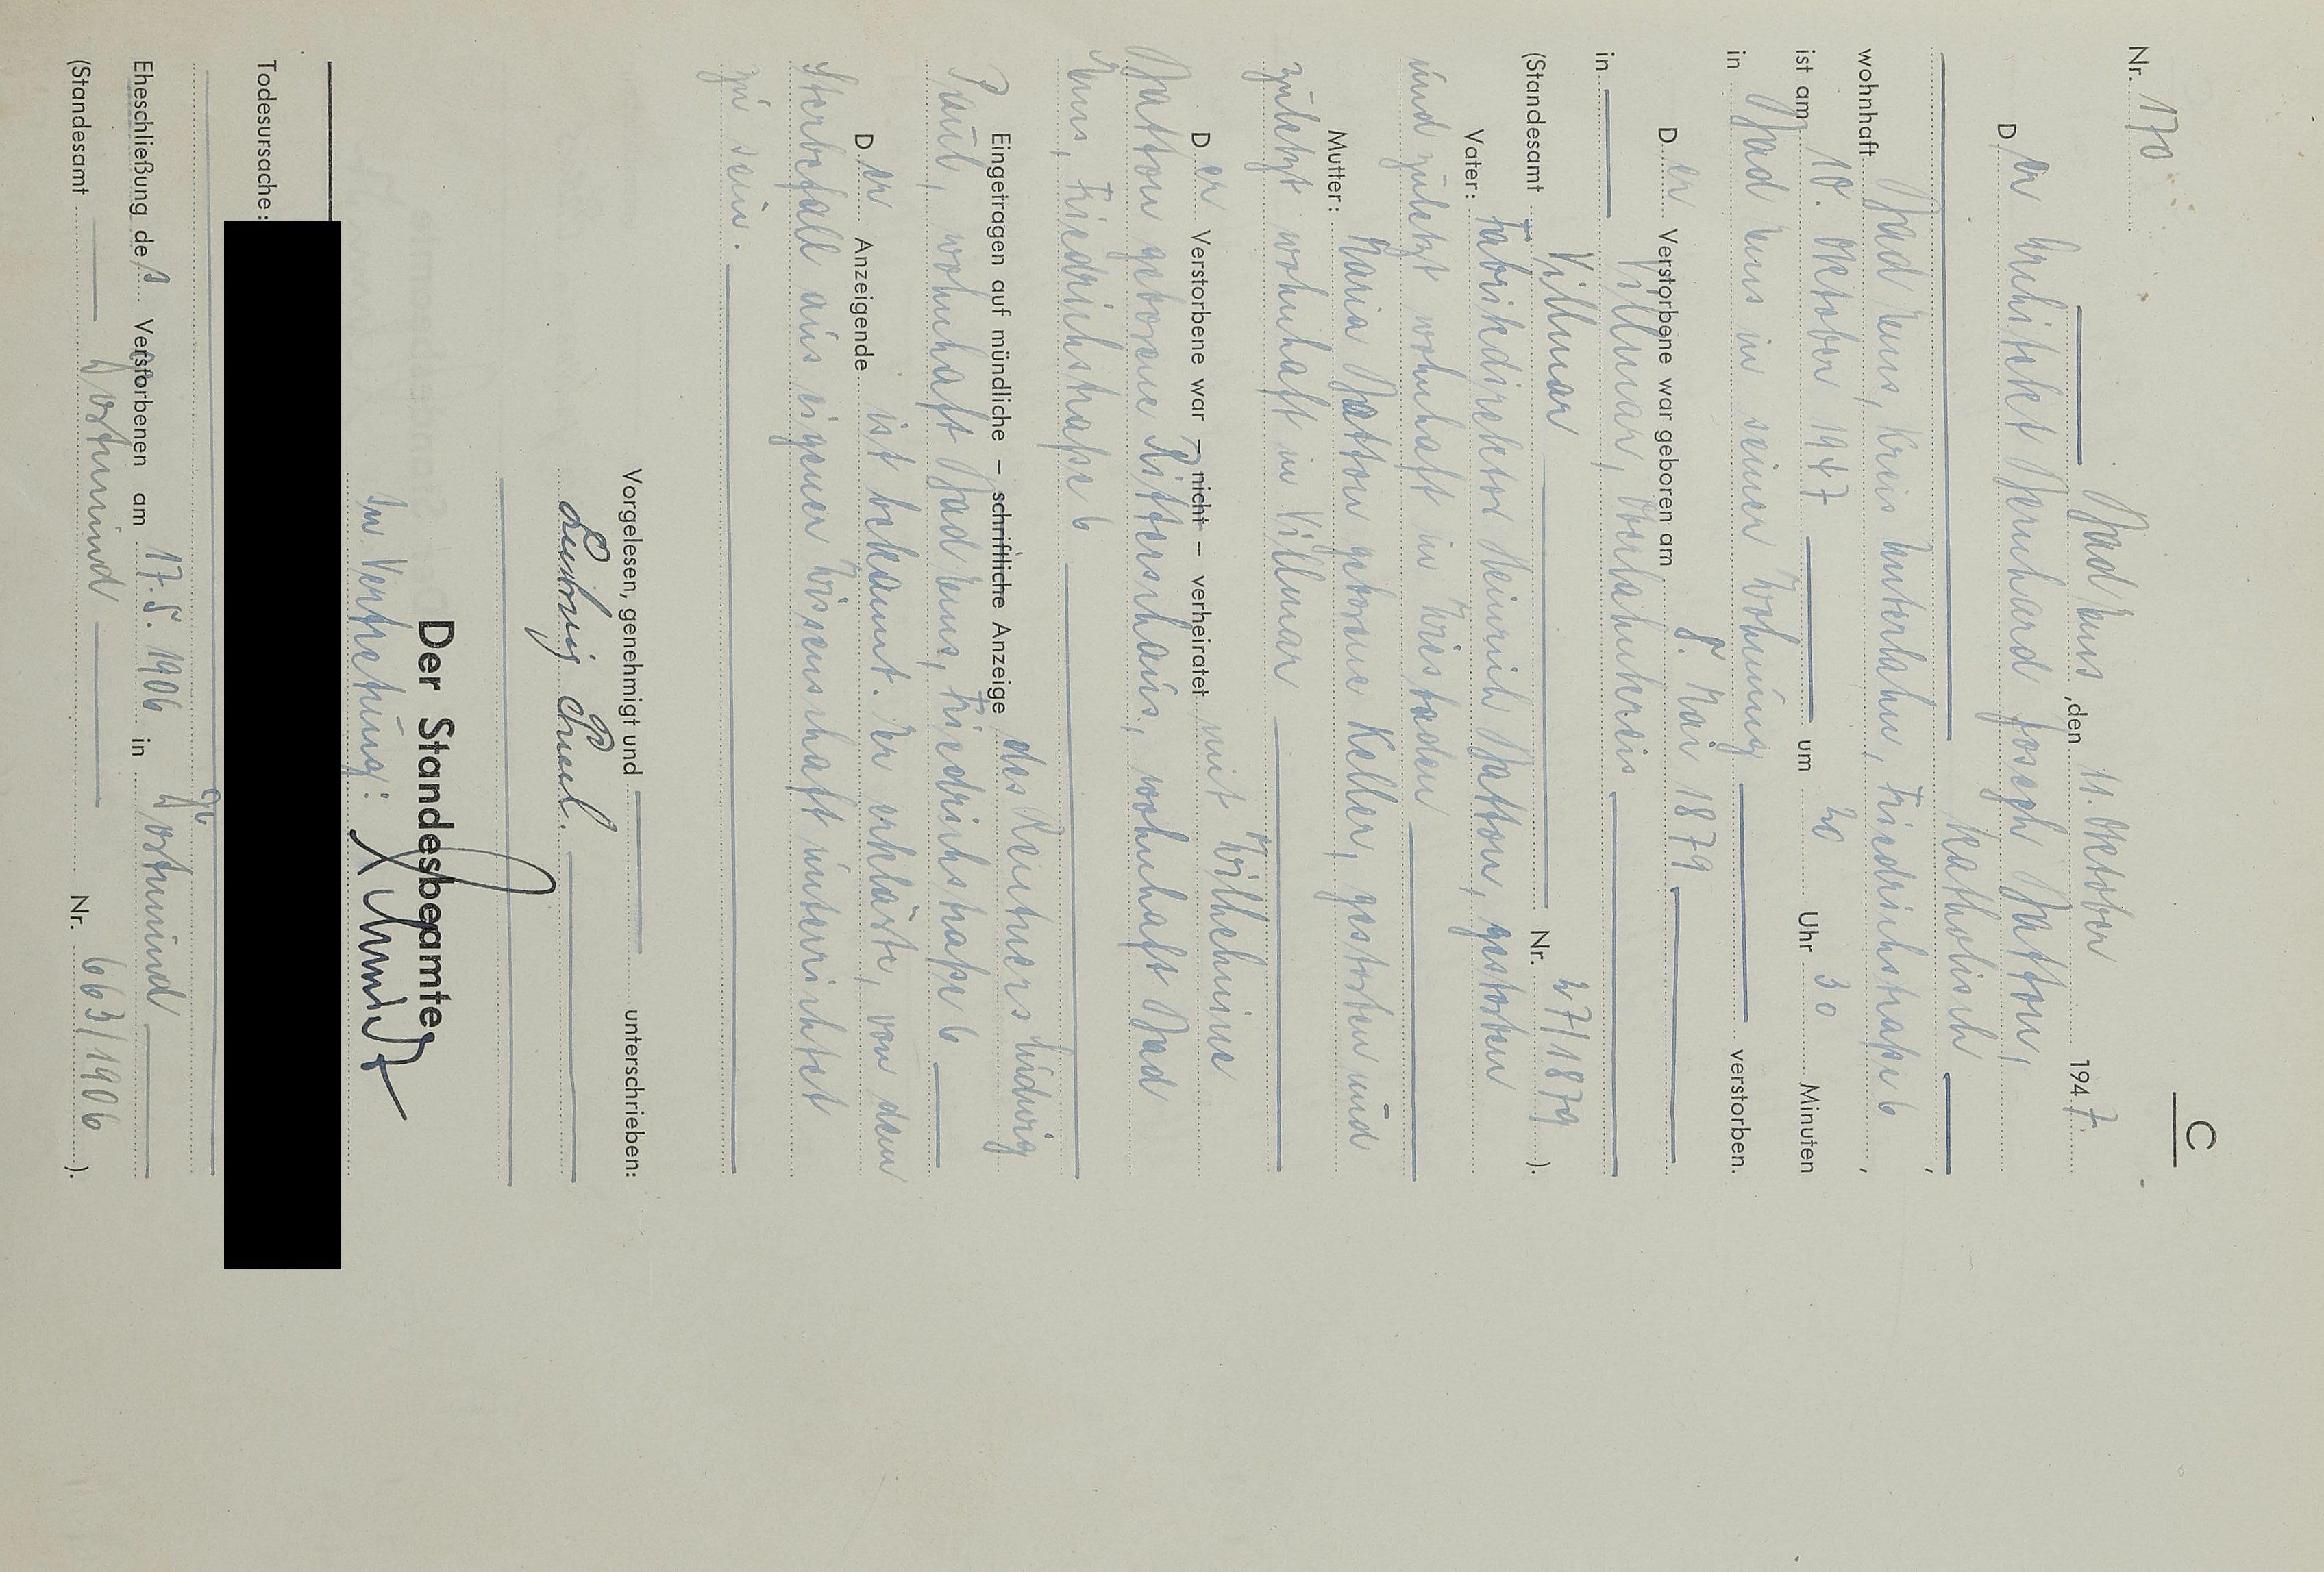 C
Nr. 170
Bad Ems, den 11. Oktober 1947.
Der Architekt Bernhard Joseph Batton,
katholisch,
wohnhaft Bad Ems, Kreis Unterlahn, Friedrichstraße 6,
ist am 10. Oktober 1947 um 20 Uhr 30 Minuten
in Bad Ems in seiner Wohnung verstorben.
Der Verstorbene war geboren am 8. Mai 1879
in Villmar, Oberlahnkreis
(Standesamt Villmar Nr. 27/1879).
Vater: Fabrikdirektor Heinrich Batton, gestorben
und zuletzt wohnhaft in Wiesbaden
Mutter: Maria Batton geborene Keller, gestorben und
zuletzt wohnhaft in Villmar
Der Verstorbene war – nicht – verheiratet mit Wilhelmine
Batton geborene Rittershaus, wohnhaft Bad
Ems, Friedrichstraße 6
Eingetragen auf mündliche – schriftliche Anzeige des Rentners Ludwig
Paul, wohnhaft Bad Ems, Friedrichstraße 6
Der Anzeigende ist bekannt. Er erklärte, von dem
Sterbefall aus eigener Wissenschaft unterrichtet
zu sein.
Vorgelesen, genehmigt und unterschrieben:
Ludwig Paul.
Der Standesbeamte
In Vertretung:
Todesursache:
Eheschließung des Verstorbenen am 17.5.1906 in Dortmund
(Standesamt Dortmund Nr. 663/1906).